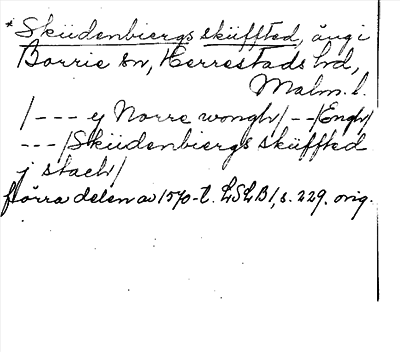 *Sküdenbiergs skiffted, äng i
Borrie sn, Herrestads hd,
Malm. l.
/--- ej Norre wongh/--/Engh/
---/Sküdenbiergs skifted
j stach/
förra delen av 1570-t. LSLB1, s. 229. orig.